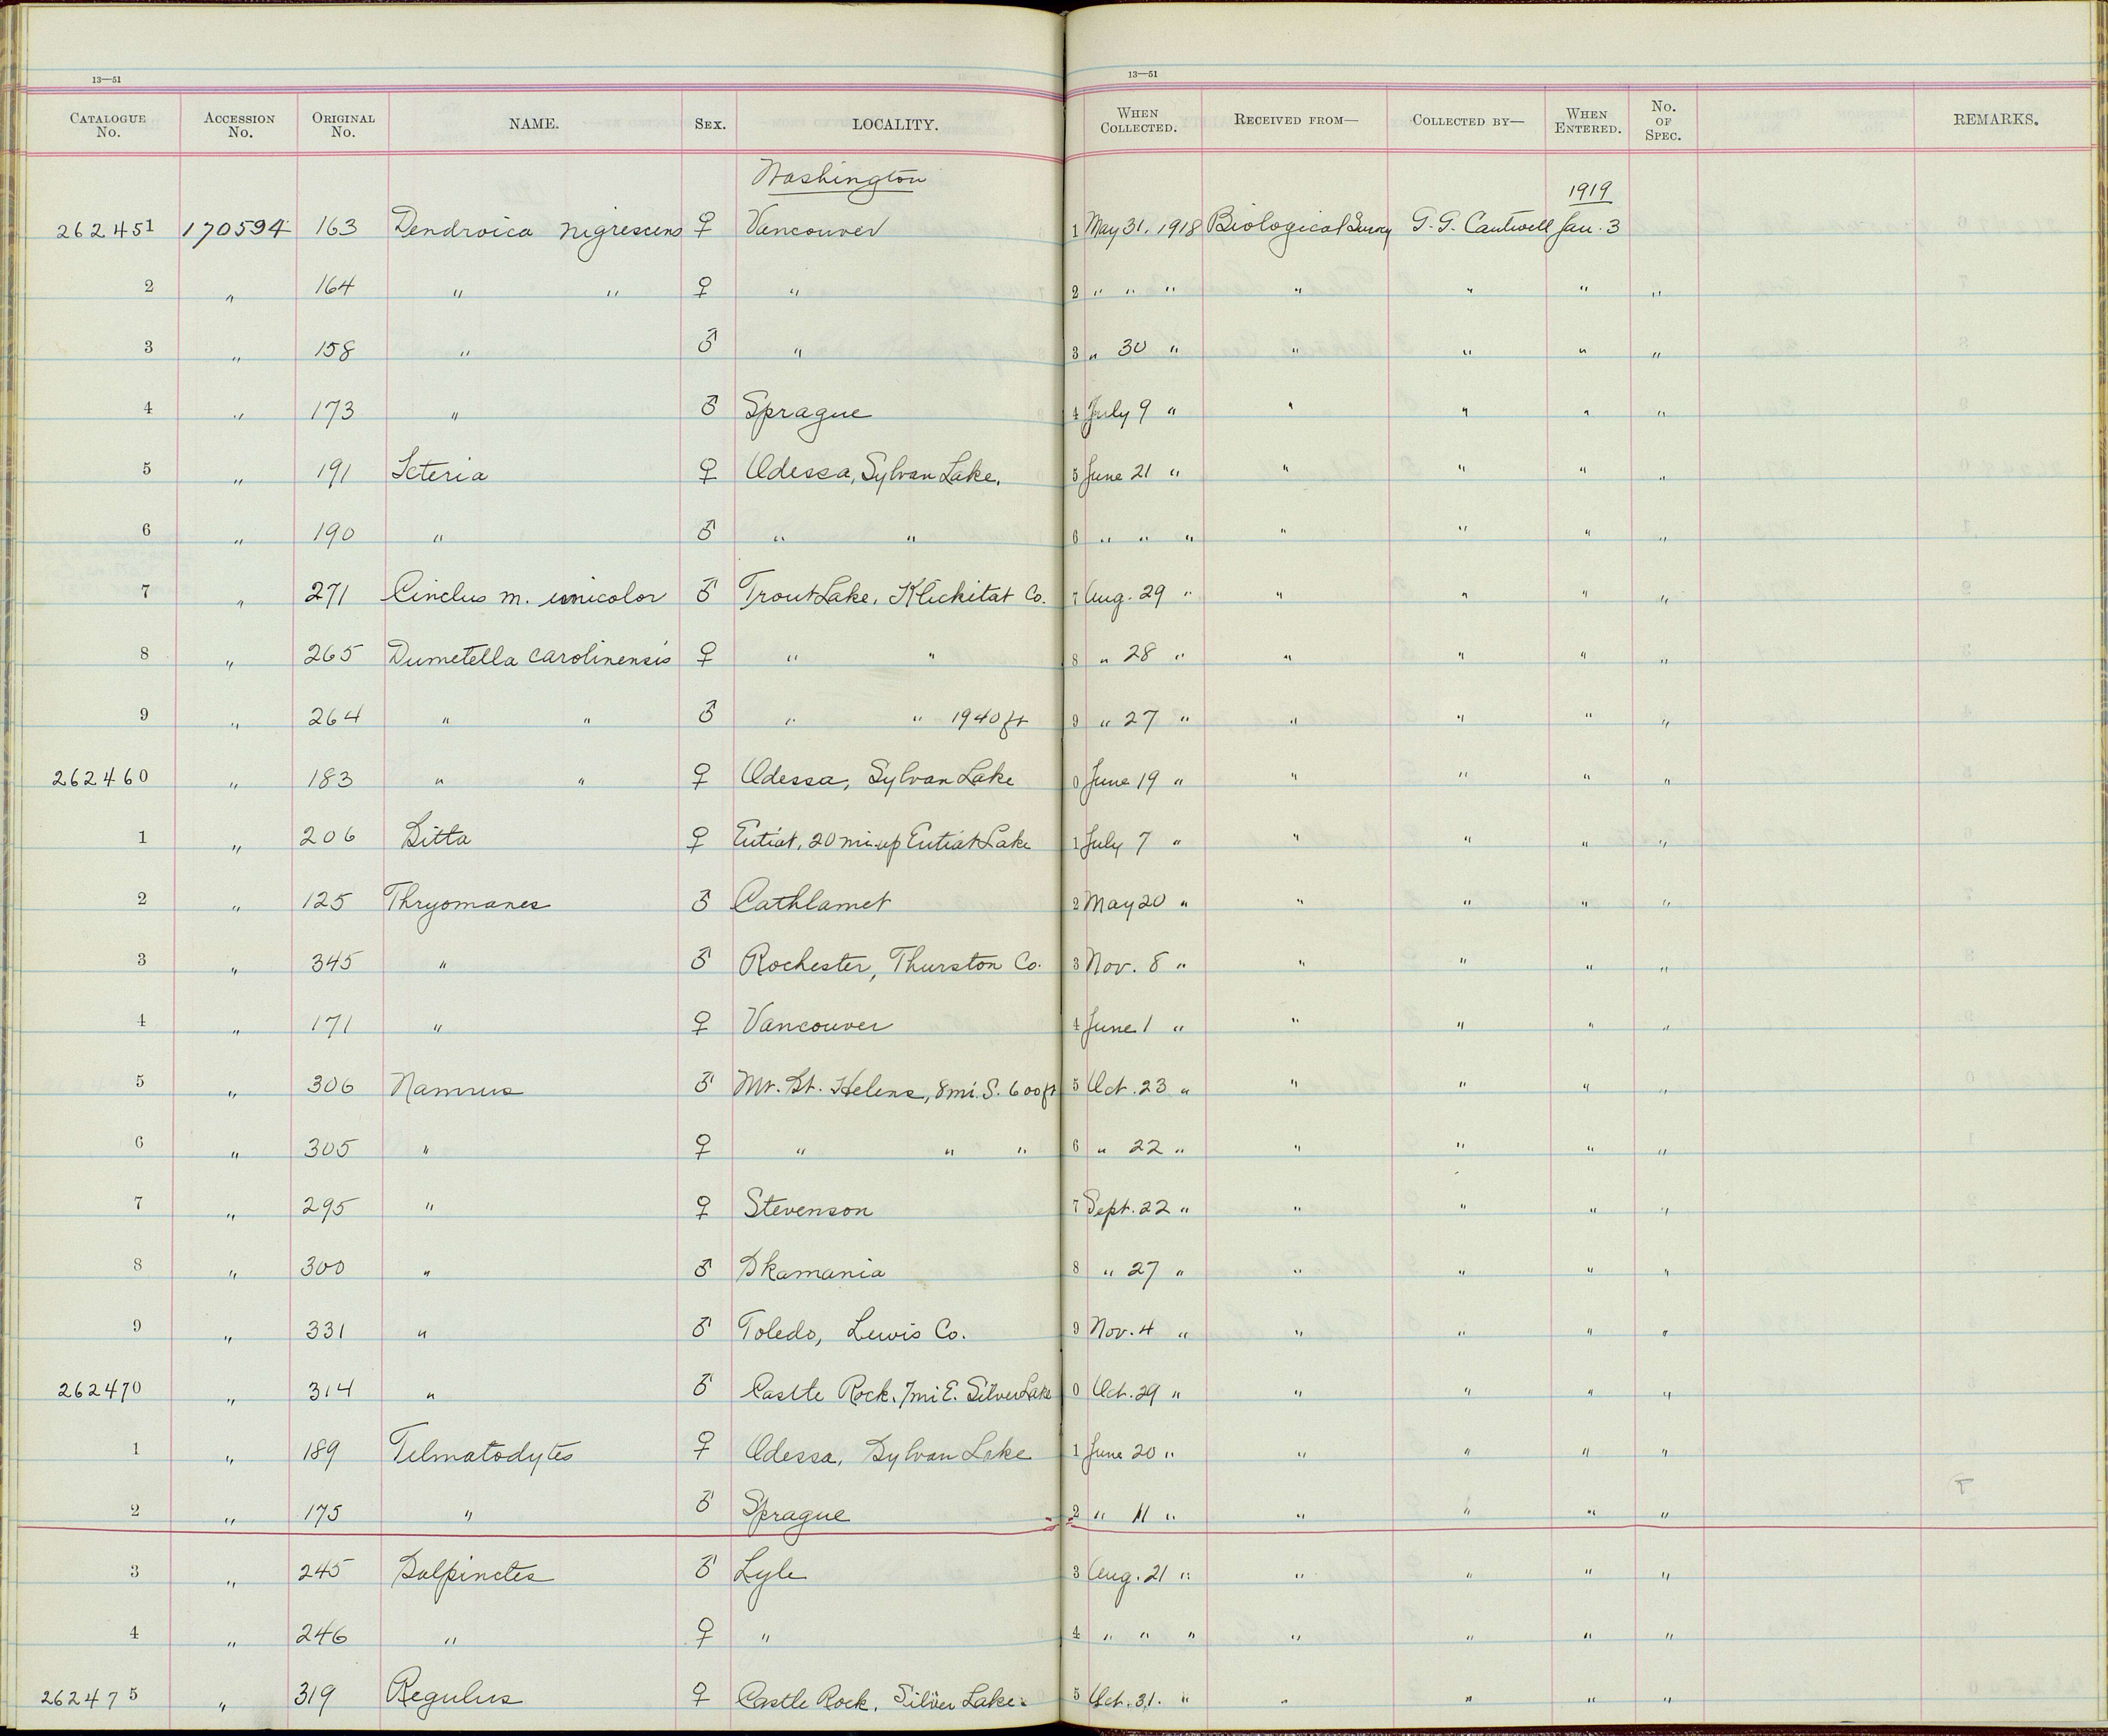 13—51 13—51
CATALOGUE No. ACCESSION No. ORIGINAL No. NAME. SEX. LOCALITY. WHEN COLLECTED. RECEIVED FROM— COLLECTED BY— WHEN ENTERED. No. OF SPEC. REMARKS.
Washington 1919
262451 170594 163 Dendroica nigrescens ♀ Vancouver 1 May 31. 1918 Biological Survey G. G. Cantwell Jan. 3
2 " 164 " " ♀ " 2 " " " " " " "
3 " 158 " ♂ " 3 " 30 " " " " "
4 " 173 " ♂ Sprague 4 July 9 " " " " "
5 " 191 Icteria ♀ Odessa, Sylvan Lake. 5 June 21 " " " " "
6 " 190 " ♂ " " 6 " " " " " " "
7 " 271 Cinclus m. unicolor ♂ Trout Lake, Klickitat Co. 7 Aug. 29 " " " " "
8 " 265 Dumetella carolinensis ♀ " " 8 " 28 " " " " "
9 " 264 " " ♂ " " 1940 ft 9 " 27 " " " " "
262460 " 183 " " ♀ Odessa, Sylvan Lake 0 June 19 " " " " "
1 " 206 Sitta ♀ Entiat, 20 mi. up Entiat Lake 1 July 7 " " " " "
2 " 125 Thryomanes ♂ Cathlamet 2 May 20 " " " " "
3 " 345 " ♂ Rochester, Thurston Co. 3 Nov. 8 " " " " "
4 " 171 " ♀ Vancouver 4 June 1 " " " " "
5 " 306 Nannus ♂ Mt. St. Helens, 8 mi. S. 600 ft 5 Oct. 23 " " " " "
6 " 305 " ♀ " " " 6 " 22 " " " " "
7 " 295 " ♀ Stevenson 7 Sept. 22 " " " " "
8 " 300 " ♂ Skamania 8 " 27 " " " " "
9 " 331 " ♂ Toledo, Lewis Co. 9 Nov. 4 " " " " "
262470 " 314 " ♂ Castle Rock. 7 mi E. Silver Lake 0 Oct. 29 " " " " "
1 " 189 Telmatodytes ♀ Odessa, Sylvan Lake 1 June 20 " " " " "
2 " 175 " ♂ Sprague 2 " 11 " " " " " T
3 " 245 Salpinctes ♂ Lyle 3 Aug. 21 " " " " "
4 " 246 " ♀ " 4 " " " " " " "
262475 " 319 Regulus ♀ Castle Rock, Silver Lake. 5 Oct. 31. " " " " "